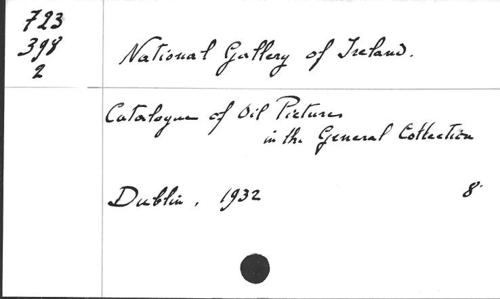 723
398
2
National Gallery of Ireland.
Catalogue of Oil Pictures
in the General Collection
Dublin, 1932 8°